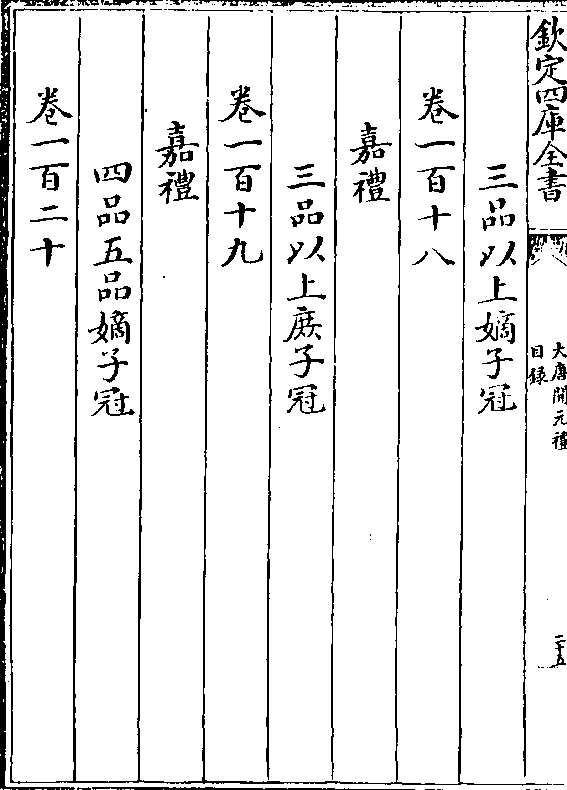 欽定四庫全書
大唐開元禮
目録
二十五
三品以上嫡子冠
卷一百十八
嘉禮
三品以上庶子冠
卷一百十九
嘉禮
四品五品嫡子冠
卷一百二十